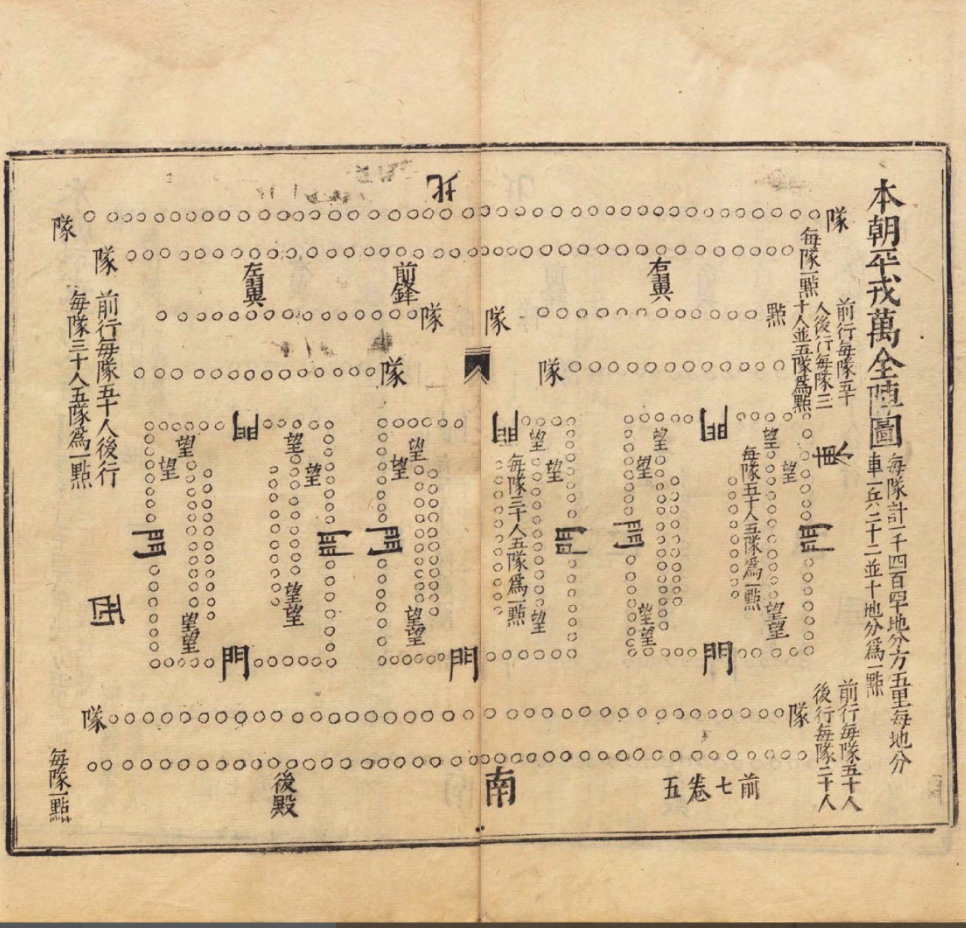 本朝平戎萬全陣圖
每隊計一千四百四十地分方五里每地分
車一兵二十二並十地分爲一點
北
隊
隊
每隊一點
隊
隊
左翼
前鋒
右翼
前行每隊五十
人後行每隊三
十人並五隊爲點
前行每隊五十人後行
每隊三十人五隊爲一點
隊
隊
點
隊
隊
東
門
門
門
望
望
望
望
望
望
望
望
望
望
望
望
每隊三十人五隊爲一點
每隊五十人五隊爲一點
門
門
門
門
門
門
西
望望
望望
望望
望
望望
望望
門
門
門
前行每隊五十人
後行每隊二十人
隊
隊
每隊一點
後殿
南
前七卷五